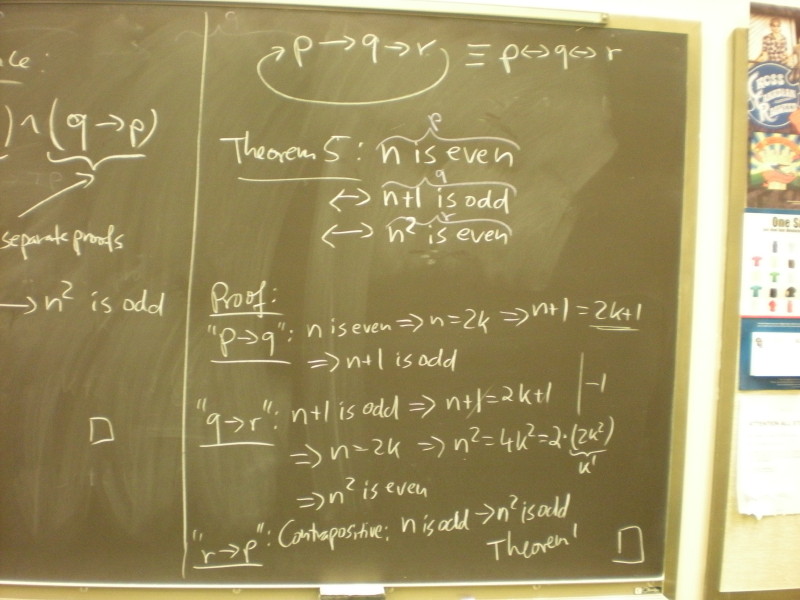 ce:
) ∧ (q → p)
separate proofs
→ n² is odd
□
p → q → r ≡ p ↔ q ↔ r
p
Theorem 5: n is even
q
↔ n+1 is odd
r
↔ n² is even
Proof:
"p → q": n is even ⇒ n = 2k ⇒ n+1 = 2k+1
⇒ n+1 is odd
"q → r": n+1 is odd ⇒ n+1 = 2k+1 | -1
⇒ n = 2k ⇒ n² = 4k² = 2·(2k²)
k'
⇒ n² is even
"r → p": Contrapositive: n is odd → n² is odd
Theorem 1
□
CROSS
CANADIAN
One